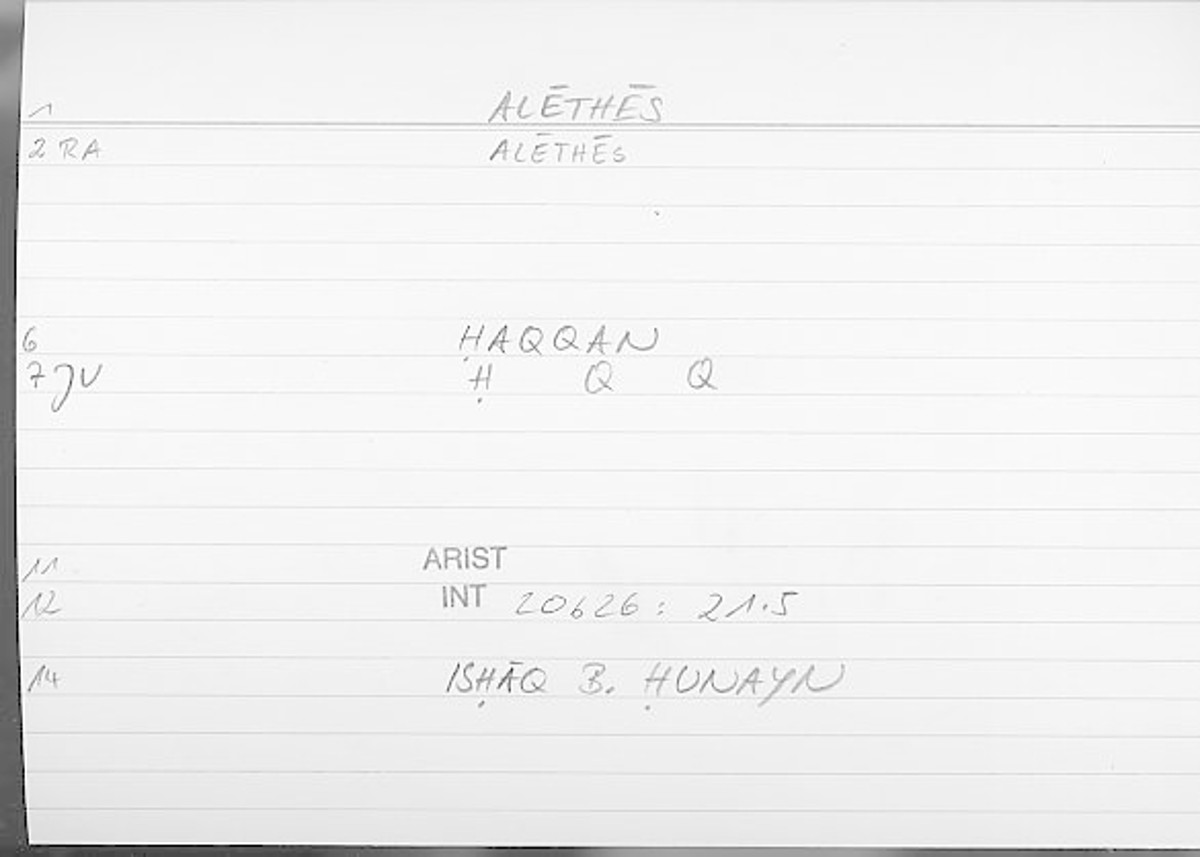 1 ALĒTHĒS
2 RA ALĒTHĒS
6 ḤAQQAN
7 JV Ḥ Q Q
11 ARIST
12 INT 20626: 21.5
14 ISḤĀQ B. ḤUNAYN